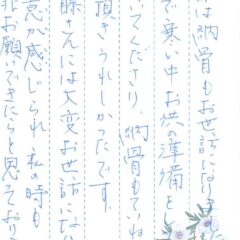 は納骨もお世話になりました
で寒い中お供の準備をし
いてくださり、納骨もていね
頂きうれしかったです。
藤さんには大変お世話にな
意が感じられ、私の時も
非お願いできたらと思っており